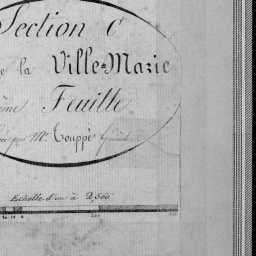 Section C
de la Ville=Marie
ème Feuille
par Mr. Touppé
Echelle d'un à 2,500